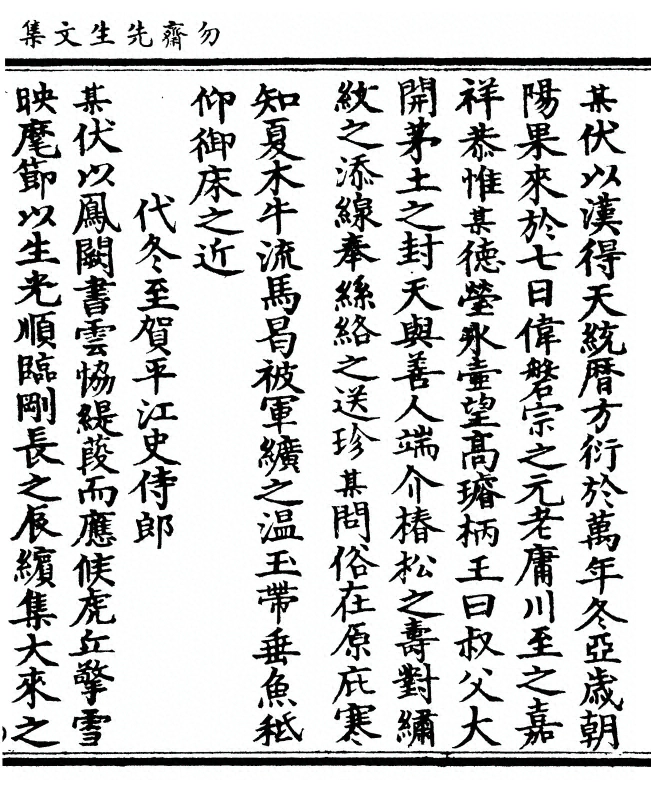 勿齋先生文集
某伏以漢得天統曆方衍於萬年冬亞歲朝
陽果來於七日偉磐宗之元老庸川至之嘉
祥恭惟某德瑩氷壺望高璿柄王曰叔父大
開茅土之封天與善人端介椿松之壽對繡
紋之添線奉絲絡之送珍某問俗在原庇寒
知夏木牛流馬曷被軍纊之温玉帶垂魚秪
仰御床之近
代冬至賀平江史侍郎
某伏以鳳闕書雲恊緹葭而應候虎丘擎雪
映麾節以生光順臨剛長之辰纘集大來之